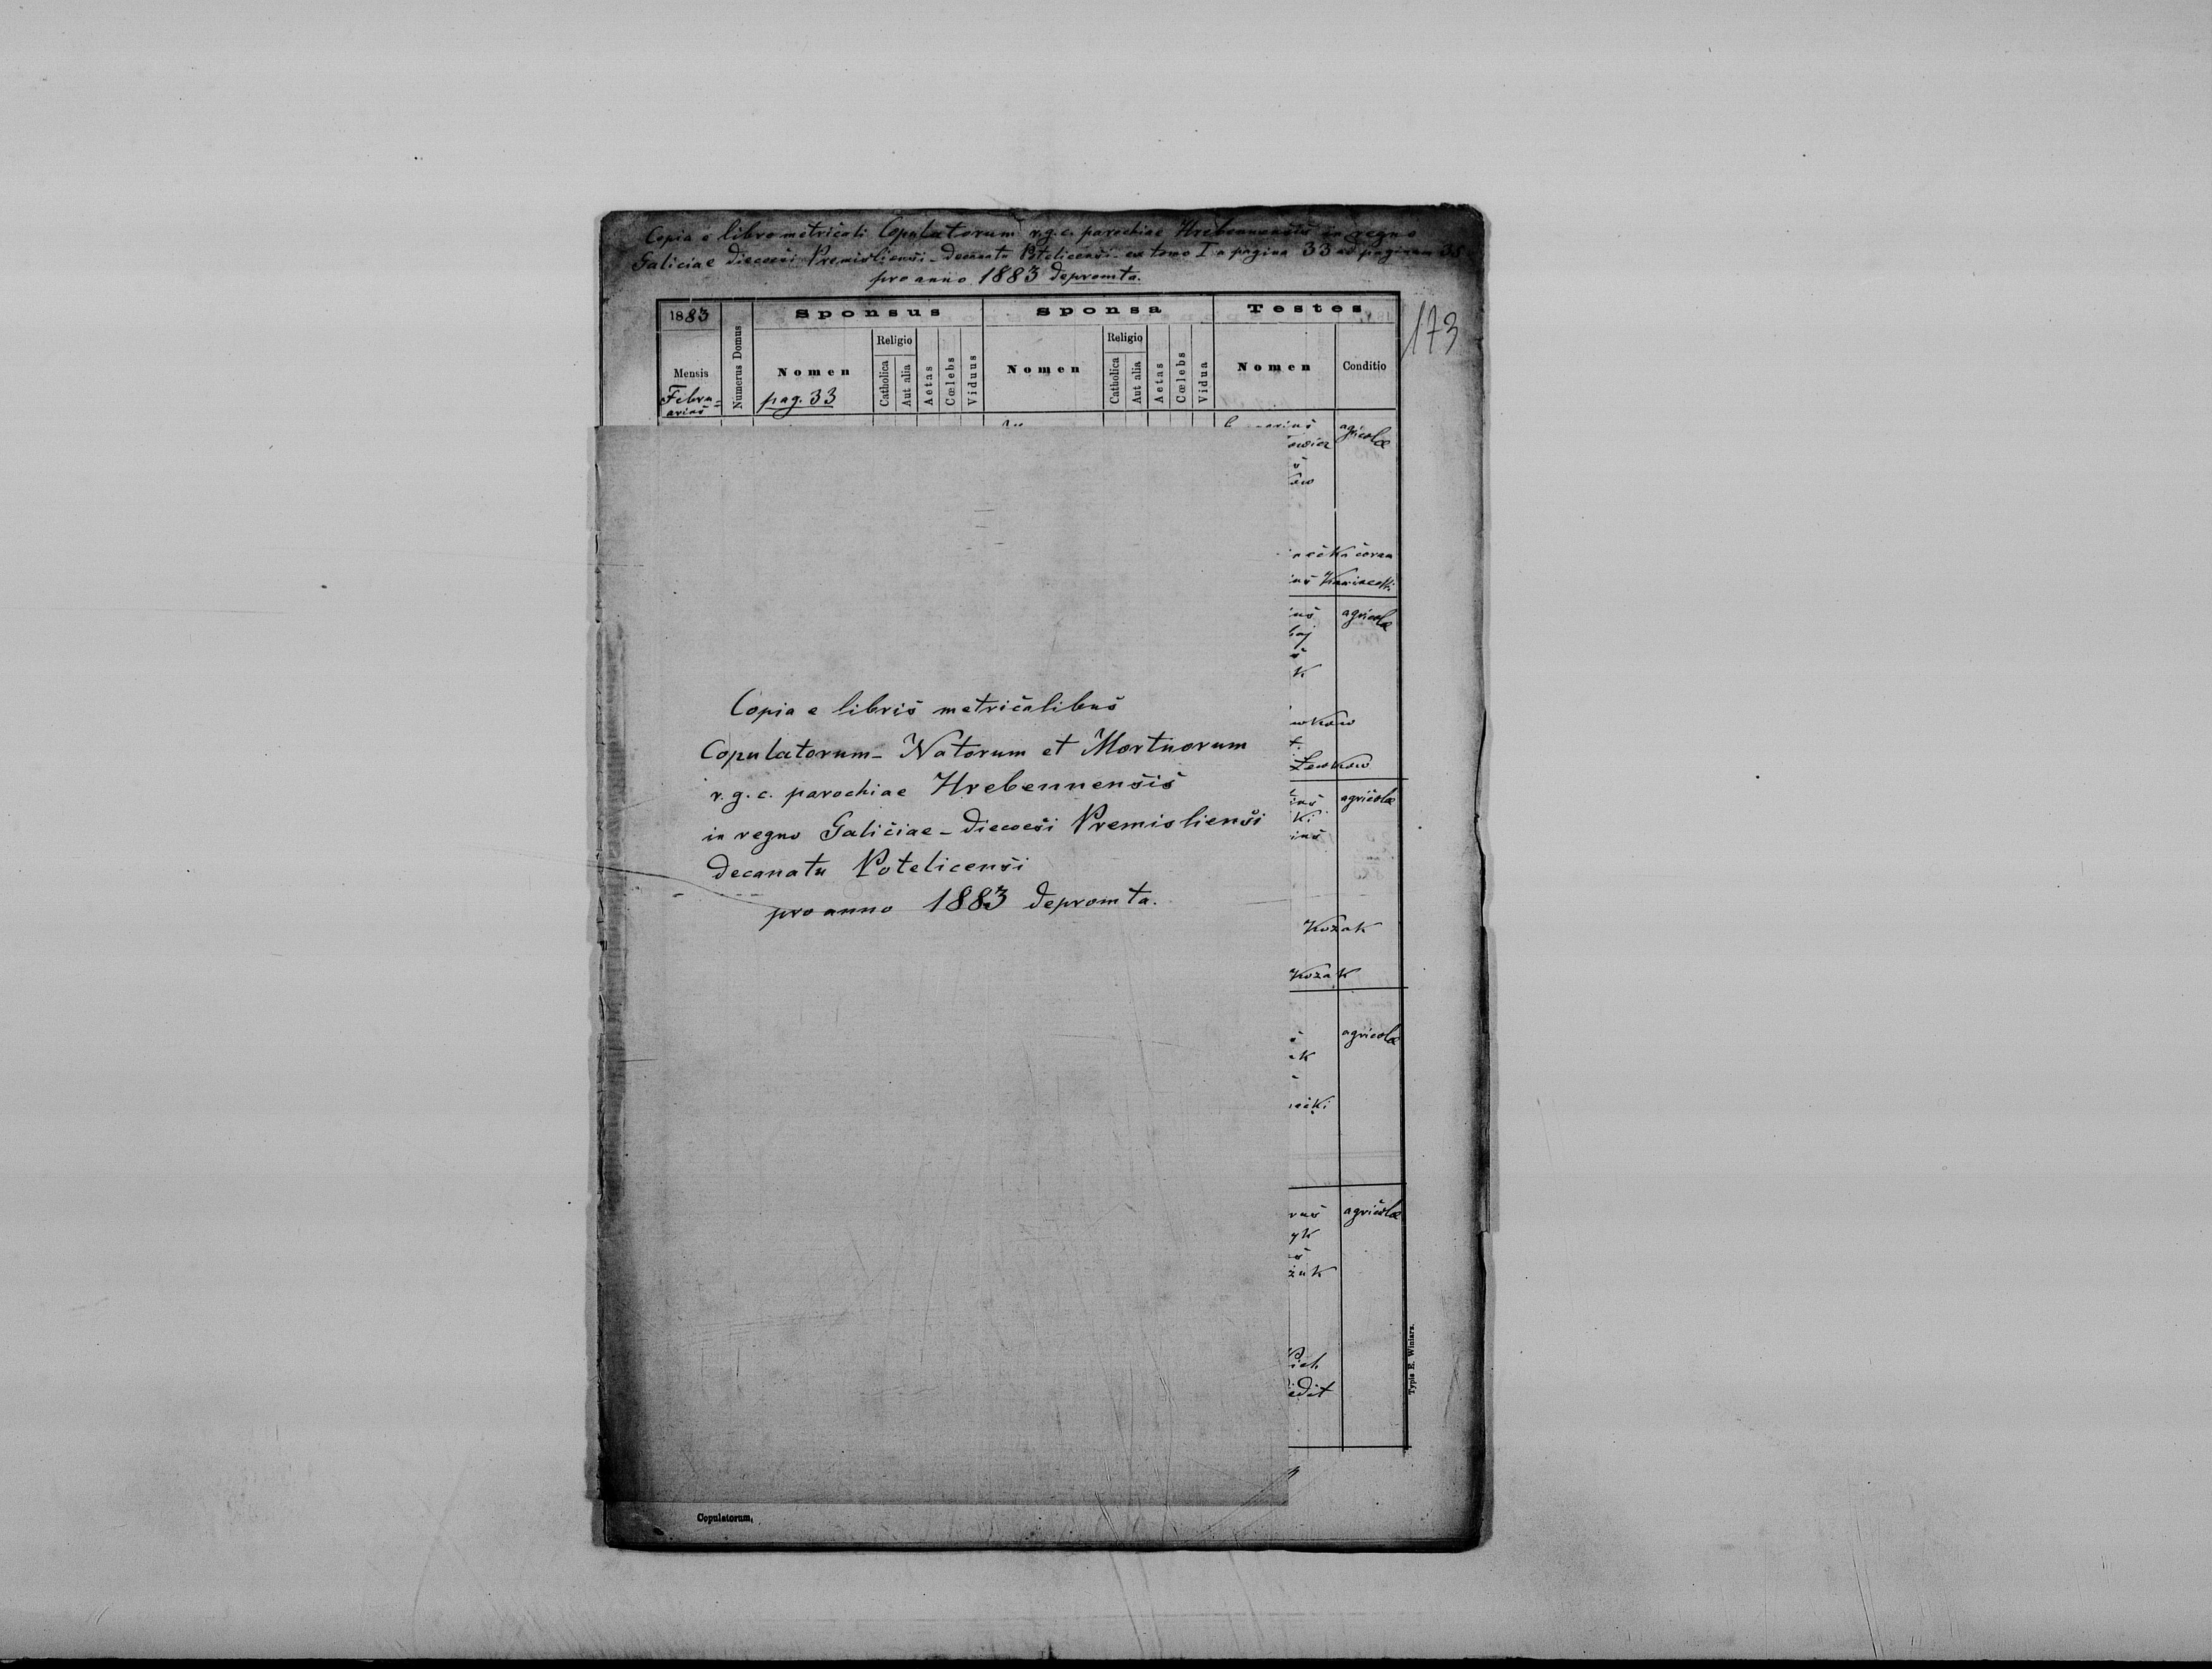 Copia e libro metricali Copulatorum r.g.c. parochiae Hrebennensis in regno
Galiciae dioecesi Premisliensi - decanatu Potelicensi - ex tomo I a pagina 33 ad paginam 35
pro anno 1883 depromta.
173
1883 Sponsus Sponsa Testes
Religio Religio
Mensis Numerus Domus Nomen Catholica Aut alia Aetas Cœlebs Viduus Nomen Catholica Aut alia Aetas Cœlebs Vidua Nomen Conditio
Febru=
arius pag. 33
agricolæ
Kawiacki
agricolæ
Lewkow
agricolæ
Kozak
Kozak
agricolæ
agricolæ
Copia e libris metricalibus
Copulatorum - Natorum et Mortuorum
r. g. c. parochiae Hrebennensis
in regno Galiciae - dioecesi Premisliensi
decanatu Potelicensi
pro anno 1883 depromta.
Typis E. Winiarz.
Copulatorum.